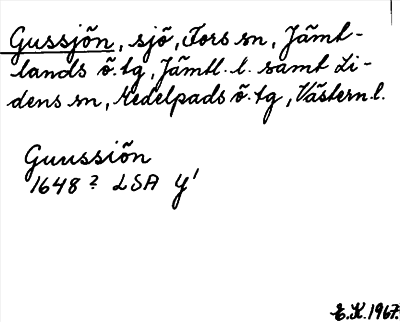 Gussjön, sjö, Fors sn, Jämt-
lands ö. tg, Jämtl. l. samt Li-
dens sn, Medelpads ö. tg, Västern. l.
Guussiön
1648? LSA Y¹
E.K. 1967.